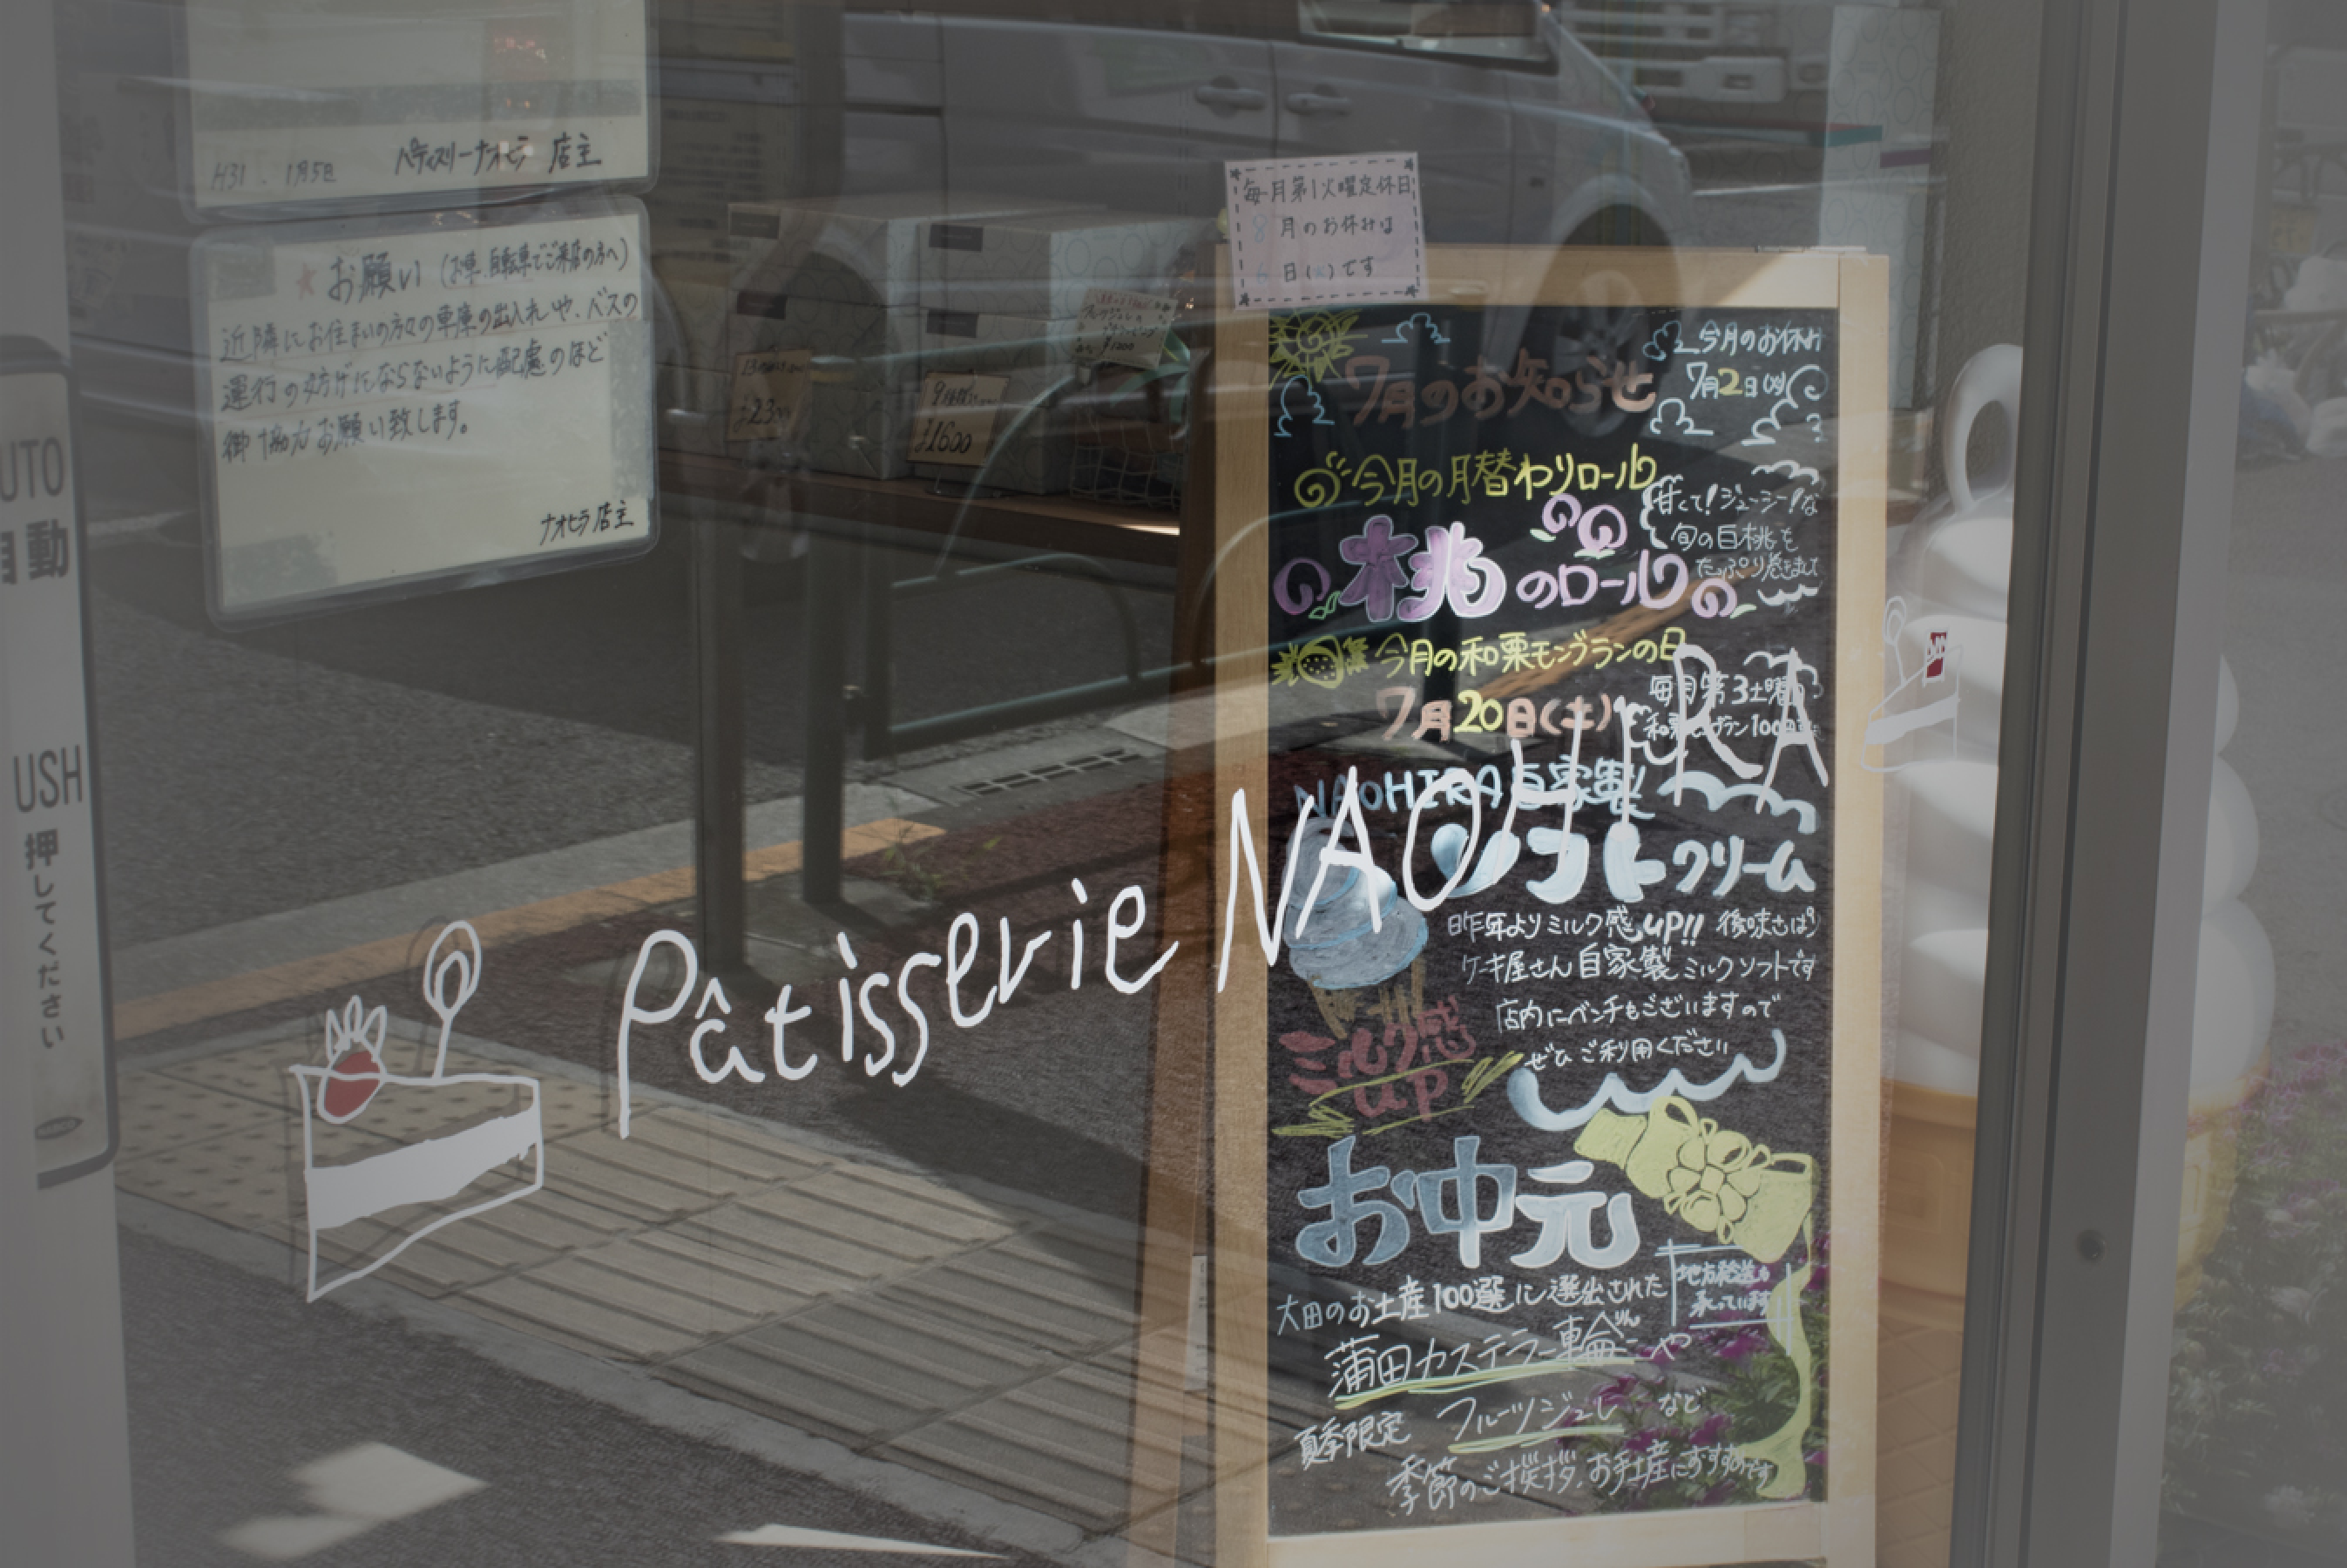 H31. 1月5日 パティスリーナオヒラ 店主
★お願い(お車、自転車でご来店の方へ)
近隣にお住まいの方々の車庫の出入れや、バスの
運行の妨げにならないように配慮のほど
御協力お願い致します。
ナオヒラ店主
UTO
自動
USH
押してください
毎月第1火曜定休日
8月のお休みは
6日(火)です
¥1200
9個
¥1600
7月のお知らせ
今月のお休み
7月2日(火)
今月の月替わりロール
桃のロール
甘くて!ジューシー!な
旬の白桃を
たっぷり巻きました
今月の和栗モンブランの日
7月20日(土)
毎月第3土曜日
和栗モンブラン
NAOHIRA自家製
ソフトクリーム
昨年よりミルク感UP!! 後味さっぱり
ケーキ屋さん自家製ミルクソフトです
店内にベンチもございますので
ぜひご利用ください
ミルク感
up
Pâtisserie NAOHIRA
お中元
大田のお土産100選に選出された
地方発送も
承っています
蒲田カステラ一輪りんや
夏季限定 フルーツジュレ など
季節のご挨拶、お手土産におすすめです